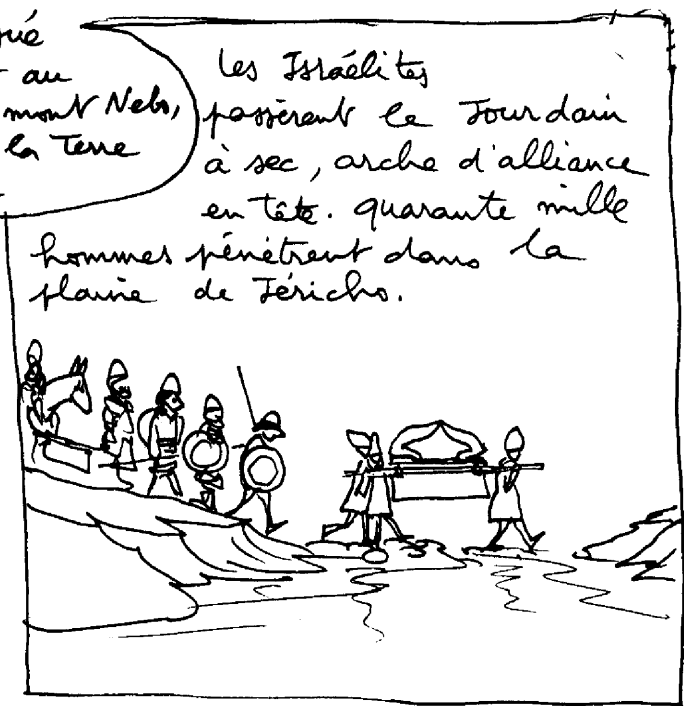 au
mont Nebo,
la Terre
Les Israélites
passèrent le Jourdain
à sec, arche d'alliance
en tête. quarante mille
hommes pénètrent dans la
plaine de Jéricho.